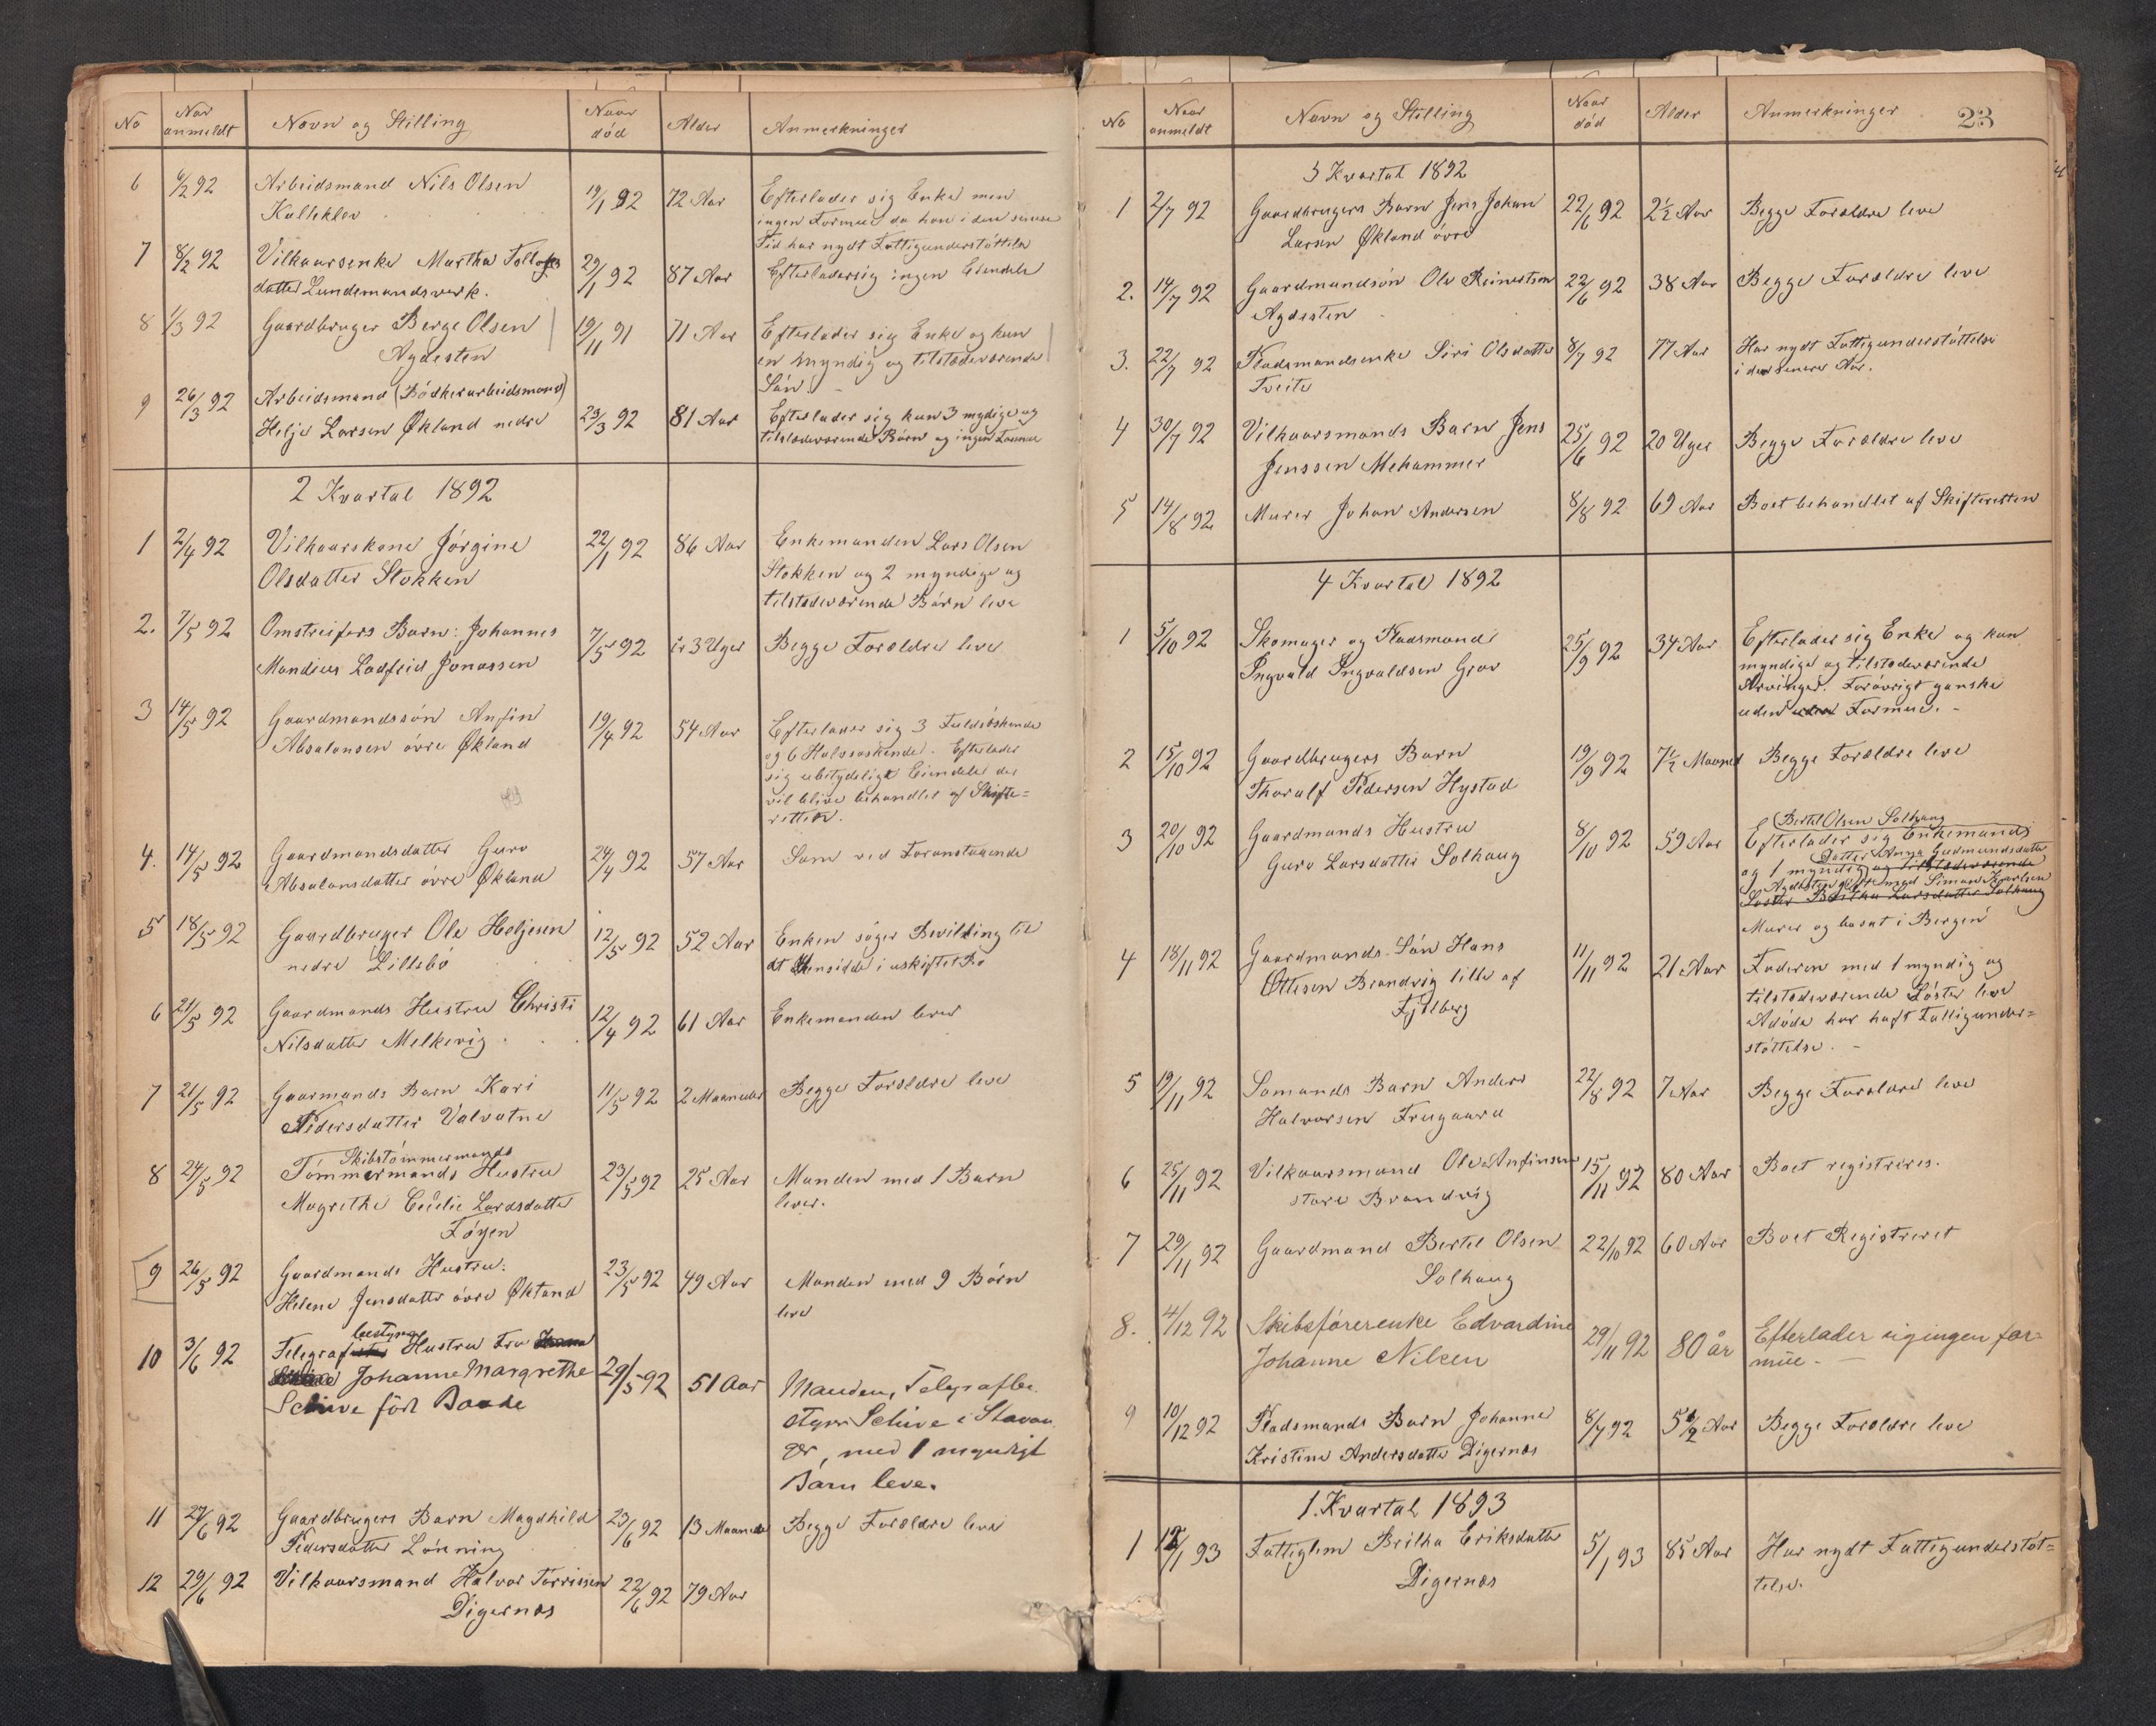 No Naar anmeldt Navn og Stilling Naar död Alder Anmerkninger
6 6/2 92 Arbeidsmand Nils Olsen 19/1 92 72 Aar Efterlader sig Enke men
Kalleklev ingen Formue da han i den senere
Tid har nydt Fattigunderstöttelse
7 8/2 92 Vilkaarsenke Martha Tollefs 29/1 92 87 Aar Efterlader sig ingen Eiendele
datter Lundsmandsverk.
8 1/3 92 Gaardbruger Berge Olsen 19/11 91 71 Aar Efterlader sig Enke og kun
Agdesten en myndig og tilstedeværende
Sön
9 26/3 92 Arbeidsmand (Bödkerarbeidsmand)
Helje Larsen Økland nedre 23/3 92 81 Aar Efterlader sig kun 3 mydige og
tilstedeværende Börn og ingen Formue
2 Kvartal 1892
1 2/4 92 Vilkaarskone Jörgine 22/1 92 86 Aar Enkemanden Lars Olsen
Olsdatter Stokken Stokken og 2 myndige og
tilstedeværende Börn leve
2. 7/5 92 Omstreifers Barn: Johannes 7/5 92 3 Uger Begge Forældre leve
Mandius Ladfeid Jonassen
3 14/5 92 Gaardmandssön Anfin 19/4 92 54 Aar Efterlader sig 3 Fuldsöskende
Absalonsen övre Økland og 6 Halvsöskende. Efterlader
sig ubetydeligt Eiendele der
vil blive behandlet af Skifte-
retten.
4. 14/5 92 Gaardmandsdatter Guro 24/4 92 57 Aar Som ved Foranstaaende
Absalonsdatter övre Økland
5 18/5 92 Gaardbruger Ole Heljesen 12/5 92 52 Aar Enken söger Bevilling til
nedre Lillebö at hensidde i uskiftet Bo
6 21/5 92 Gaardmands Hustru Christi 12/4 92 61 Aar Enkemanden lever
Nilsdatter Melkevig
7 21/5 92 Gaarmands Barn Kari 11/5 92 2 Maaneder Begge Forældre leve
Pedersdatter Valvatne
Skibstömmermands
8 24/5 92 Tömmermands Hustru 23/5 92 25 Aar Manden med 1 Barn
Magrethe Cecilie Lardsdatter lever.
Föyen
9 26/5 92 Gaardmands Hustru: 23/5 92 49 Aar Manden med 9 Börn
Helene Jensdatter övre Økland leve
bestyrer
10 3/6 92 Telegraf Hustru Fru
Johanne Margrethe 29/5 92 51 Aar Manden, Telegrafbe-
Schive föd Baade styrer Schive i Stavan-
ger, med 1 myndigt
Barn leve.
11 27/6 92 Gaardbrugers Barn Magdhild 23/6 92 13 Maaneder Begge Forældre leve
Pedersdatter Lönning
12 29/6 92 Vilkaarsmand Halvor Torrissen 22/6 92 79 Aar
Digernæs
No Naar anmeldt Navn og Stilling Naar död Alder Anmerkninger 23
3 Kvartal 1892
1 2/7 92 Gaardbrugers Barn Jens Johan 22/6 92 2½ Aar Begge Forældre leve
Larsen Økland övre
2. 14/7 92 Gaardmandsön Ole Reinertsen 22/6 92 38 Aar Begge Forældre leve
Agdesten
3. 22/7 92 Pladsmandsenke Siri Olsdatter 8/7 92 77 Aar Har nydt Fattigunderstöttelse
Tveite i den senere Aar.
4 30/7 92 Vilkaarsmands Barn Jens 25/6 92 20 Uger Begge Forældre leve
Jenssen Mehammer
5 14/8 92 Murer Johan Andersen 8/8 92 69 Aar Boet behandlet af Skifteretten
4 Kvartal 1892
1 5/10 92 Skomager og Pladsmand 25/9 92 34 Aar Efterlader sig Enke og kun
Ingvald Ingvaldsen Grov myndige og tilstedeværende
Arvinger. Forövrigt ganske
uden uden Formue. -
2 15/10 92 Gaardbrugers Barn 19/9 92 7½ Maaned Begge Forældre leve
Thoralf Pedersen Hystad
Bertel Olsen Solhaug
3 20/10 92 Gaardmands Hustru 8/10 92 59 Aar Efterlader sig Enkemand
Guro Larsdatter Solhaug Datter Anna Gudmundsdatter
og 1 myndig og tilstedeværende
Agdesten gift med Simon Karlsen
Söster Britha Larsdatter Solhaug
Murer og bosat i Bergen
4 18/11 92 Gaardmands Sön Hans 11/11 92 21 Aar Faderen med 1 myndig og
Ottesen Brandvig lille af tilstedeværende Söster leve
Fjelberg Adöde har haft Fattigunder-
stöttelse. -
5 19/11 92 Sömands Barn Anders 22/8 92 7 Aar Begge Forældre leve
Halvorsen Frugaard
6 25/11 92 Vilkaarsmand Ole Anfinsen 15/11 92 80 Aar Boet registreres.
store Brandvig
7 29/11 92 Gaardmand Bertel Olsen 22/10 92 60 Aar Boet Registreret
Solhaug
8. 4/12 92 Skibsförerenke Edvardine 29/11 92 80 år Efterlader sig ingen for-
Johanne Nilsen mue. -
9 10/12 92 Pladsmands Barn Johanne 8/7 92 5½ Aar Begge Forældre leve
Kristine Andersdatter Digernæs
1. Kvartal 1893
1 /1 93 Fattiglem Britha Eriksdatter 5/1 93 85 Aar Har nydt Fattigunderstöt-
Digernæs telse.